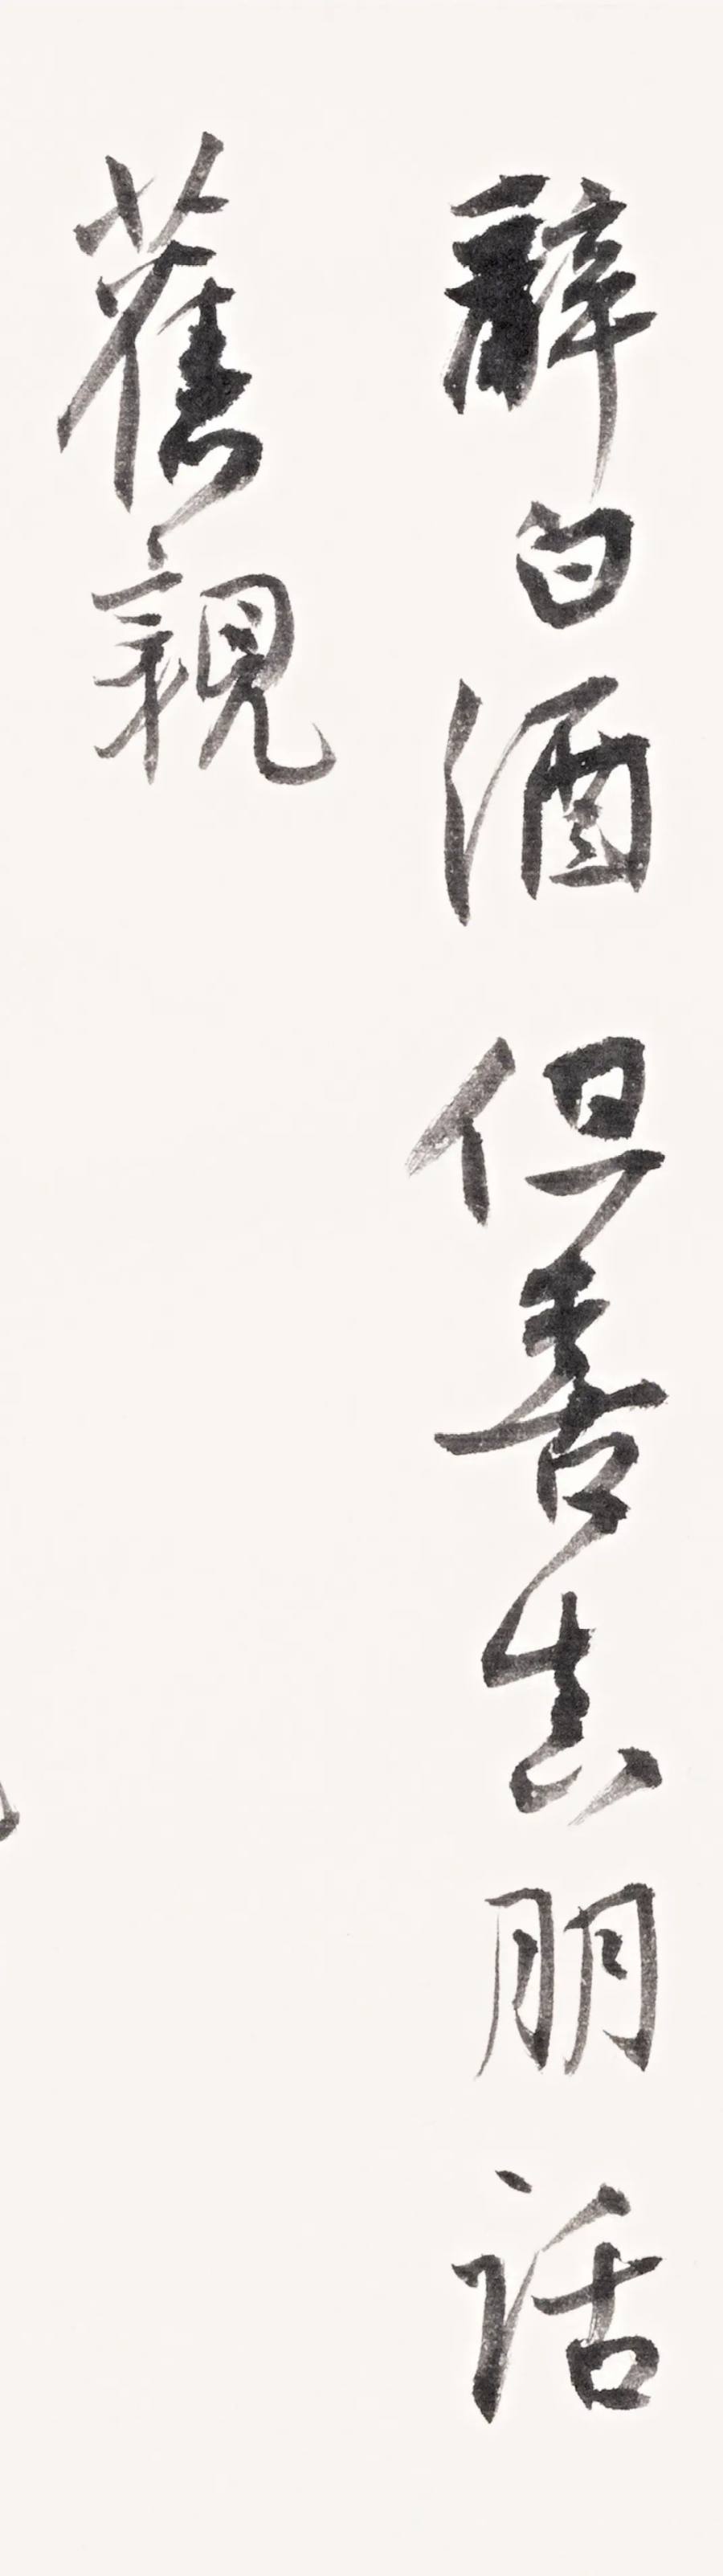 辭白酒但喜真朋話
舊親